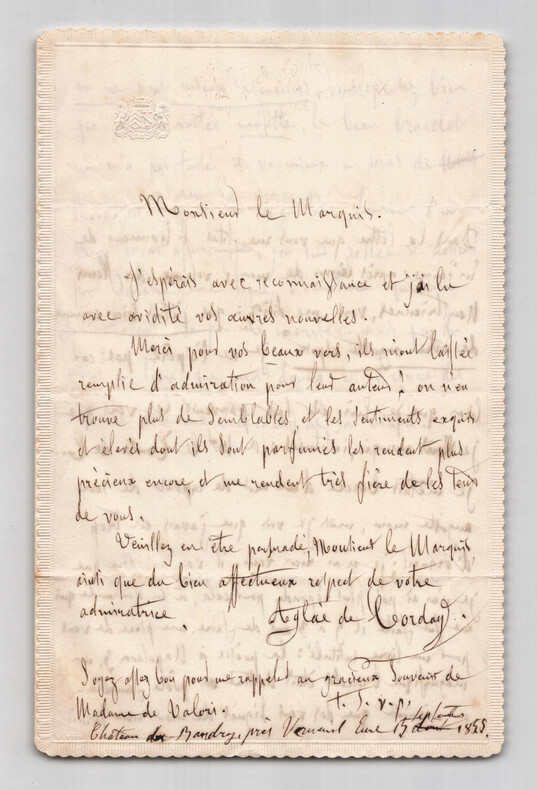 Monsieur le Marquis.
J'espérais avec reconnaissance et j'ai lu
avec avidité vos œuvres nouvelles.
Merci pour vos beaux vers, ils m'ont laissée
remplie d'admiration pour leur auteur! on n'en
trouve plus de semblables, et les sentiments exquis
et élevés dont ils sont parfumés les rendent plus
précieux encore, et me rendent très fière de les tenir
de vous.
Veuillez en être persuadé, Monsieur le Marquis
ainsi que du bien affectueux respect de votre
admiratrice.
Aglaé de Corday.
Soyez assez bon pour me rappeler au gracieux souvenir de
Madame de Valori.
t. s. v. p.
Château près Verneuil Eure 15 septembre